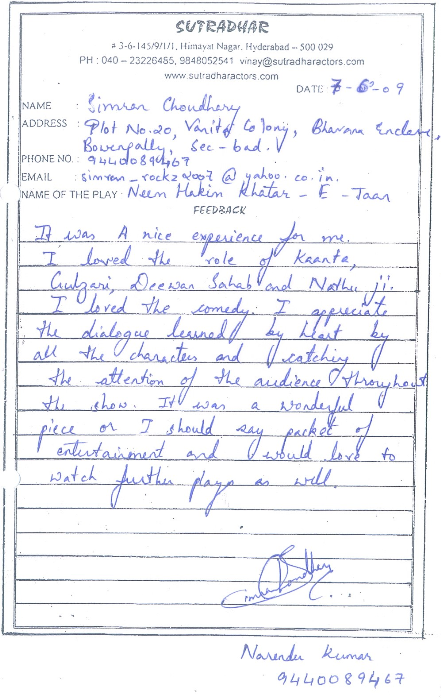 SUTRADHAR
# 3-6-145/9/1/1, Himayat Nagar, Hyderabad – 500 029
PH : 040 – 23226485, 9848052541 vinay@sutradharactors.com
www.sutradharactors.com
DATE 7-6-09
NAME : Simran Choudhary
ADDRESS : Plot No.20, Vanity Colony, Bhavana Enclave,
Bowenpally, Sec-bad.
PHONE NO. : 9440089467
EMAIL : simran_rockz2007@yahoo.co.in.
NAME OF THE PLAY : Neem Hakim Khatar - E - Jaan
FEEDBACK
It was A nice experience for me.
I loved the role of Kaanta,
Gulzari, Deewan Sahab and Nathu ji.
I loved the comedy. I appreciate
the dialogue learned by heart by
all the characters and catching
the attention of the audience throughout
the show. It was a wonderful
piece or I should say packet of
entertainment and would love to
watch further plays as well.
Narender Kumar
9440089467